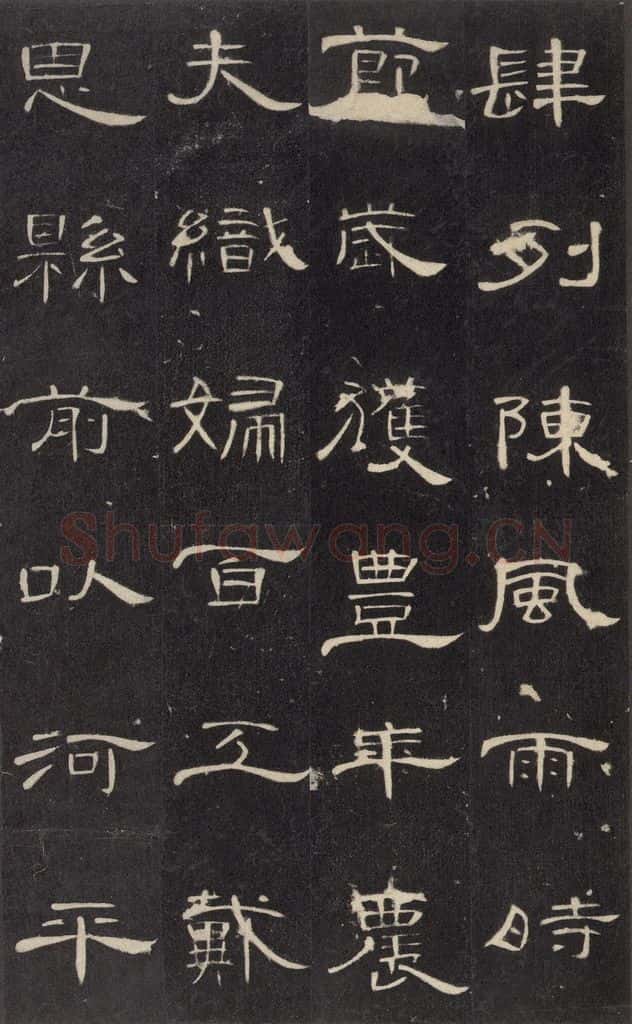 肆列陳風雨時
節歲獲豊年農
夫織婦百工戴
恩縣前以河平
Shufawang.CN